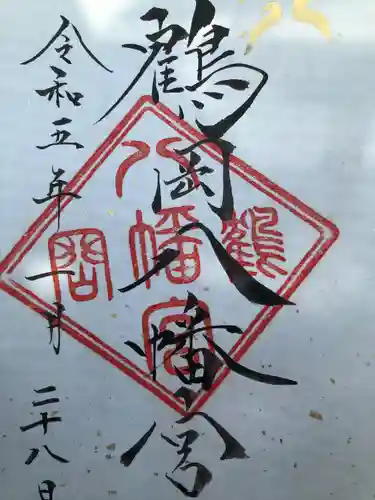 鶴岡八幡宮
令和五年一月二十八日
鶴岡八幡宮